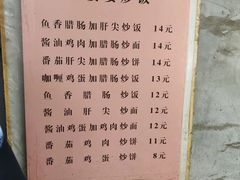 炒饭
鱼香腊肠加肝尖炒饭 14元
酱油鸡肉加腊肠炒面 14元
番茄鸡蛋加肝尖炒饼 14元
咖喱鸡蛋加腊肠炒饭 13元
鱼香腊肠炒饭 12元
酱油肝尖炒面 12元
酱油鸡蛋加鸡肉炒面 12元
番茄鸡肉炒饼 11元
番茄鸡蛋炒饼 8元